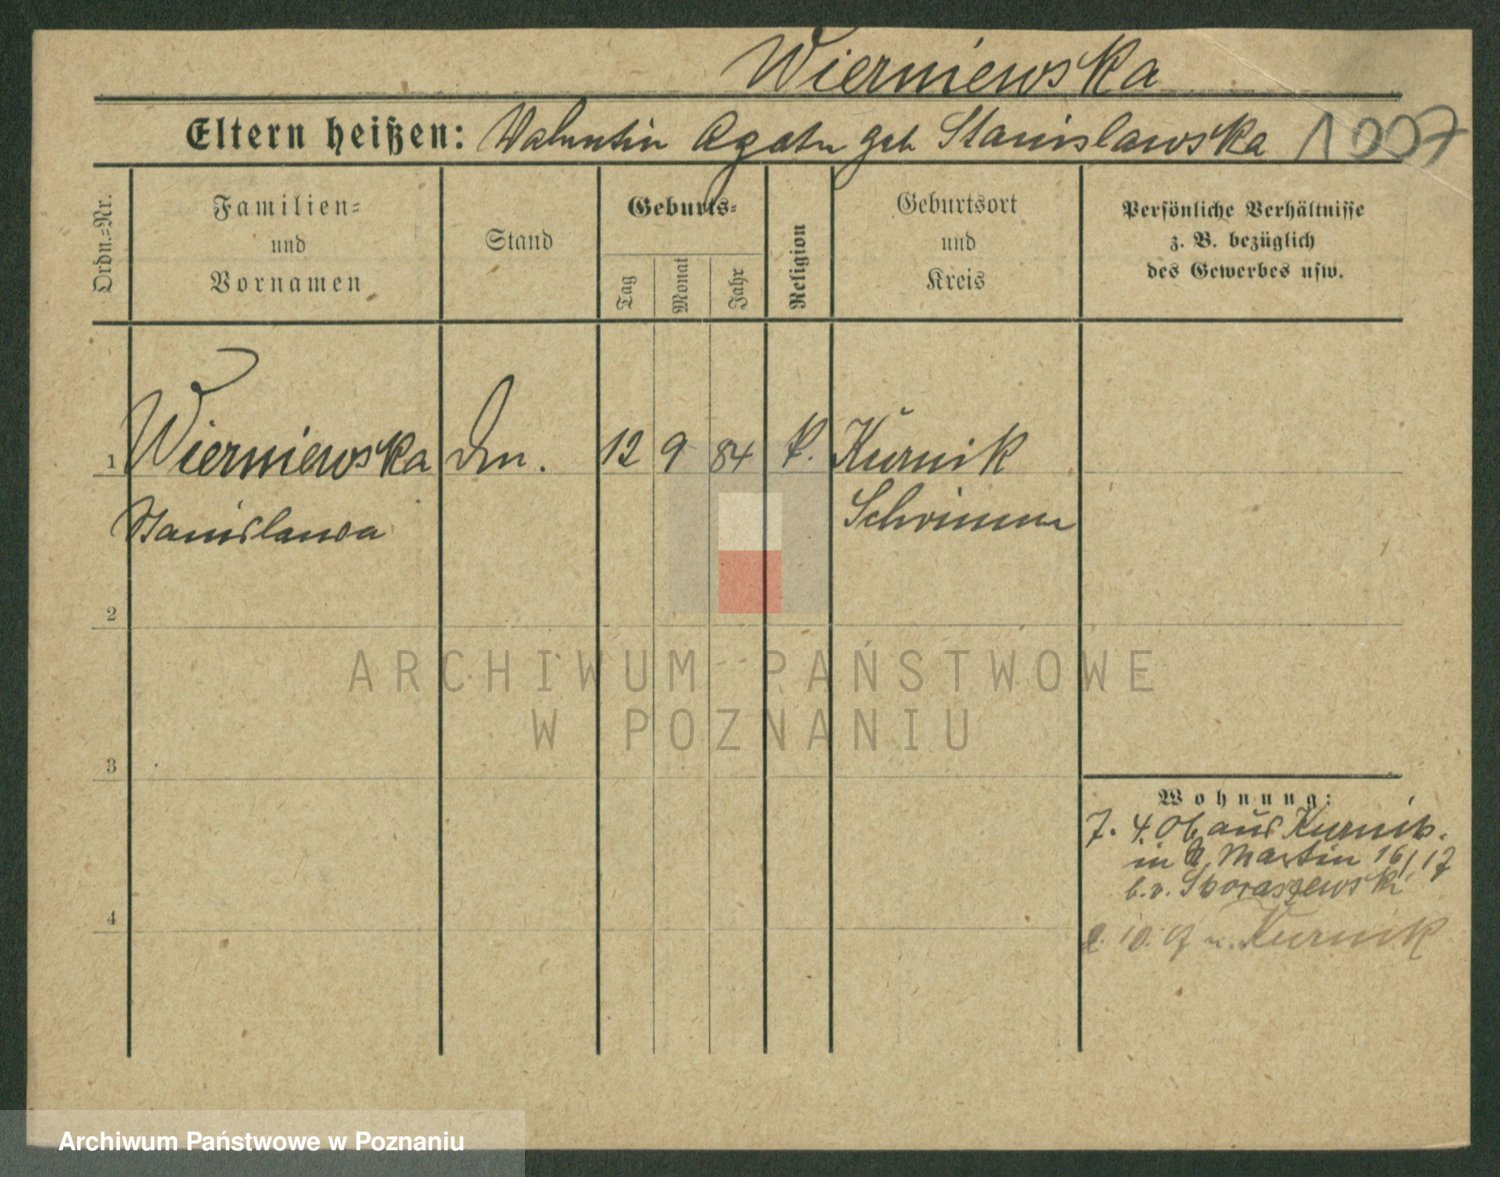 Wierniewska
Eltern heißen: Valentin Agatu geb Stanislawska 1007
Ordn.=Nr.
Familien=
und
Vornamen
Stand
Geburts=
Tag
Monat
Jahr
Religion
Geburtsort
und
Kreis
Persönliche Verhältnisse
z. B. bezüglich
des Gewerbes usw.
1 Wierniewska 12 9 84 k. Kurnik
Stanislawa Schrimm
2
3
4
Wohnung:
7. 4. 06 aus Kurnik.
in St. Martin 16/17
b. v. Skoraszewski
2. 10. 07 n. Kurnik
ARCHIWUM PAŃSTWOWE
W POZNANIU
Archiwum Państwowe w Poznaniu